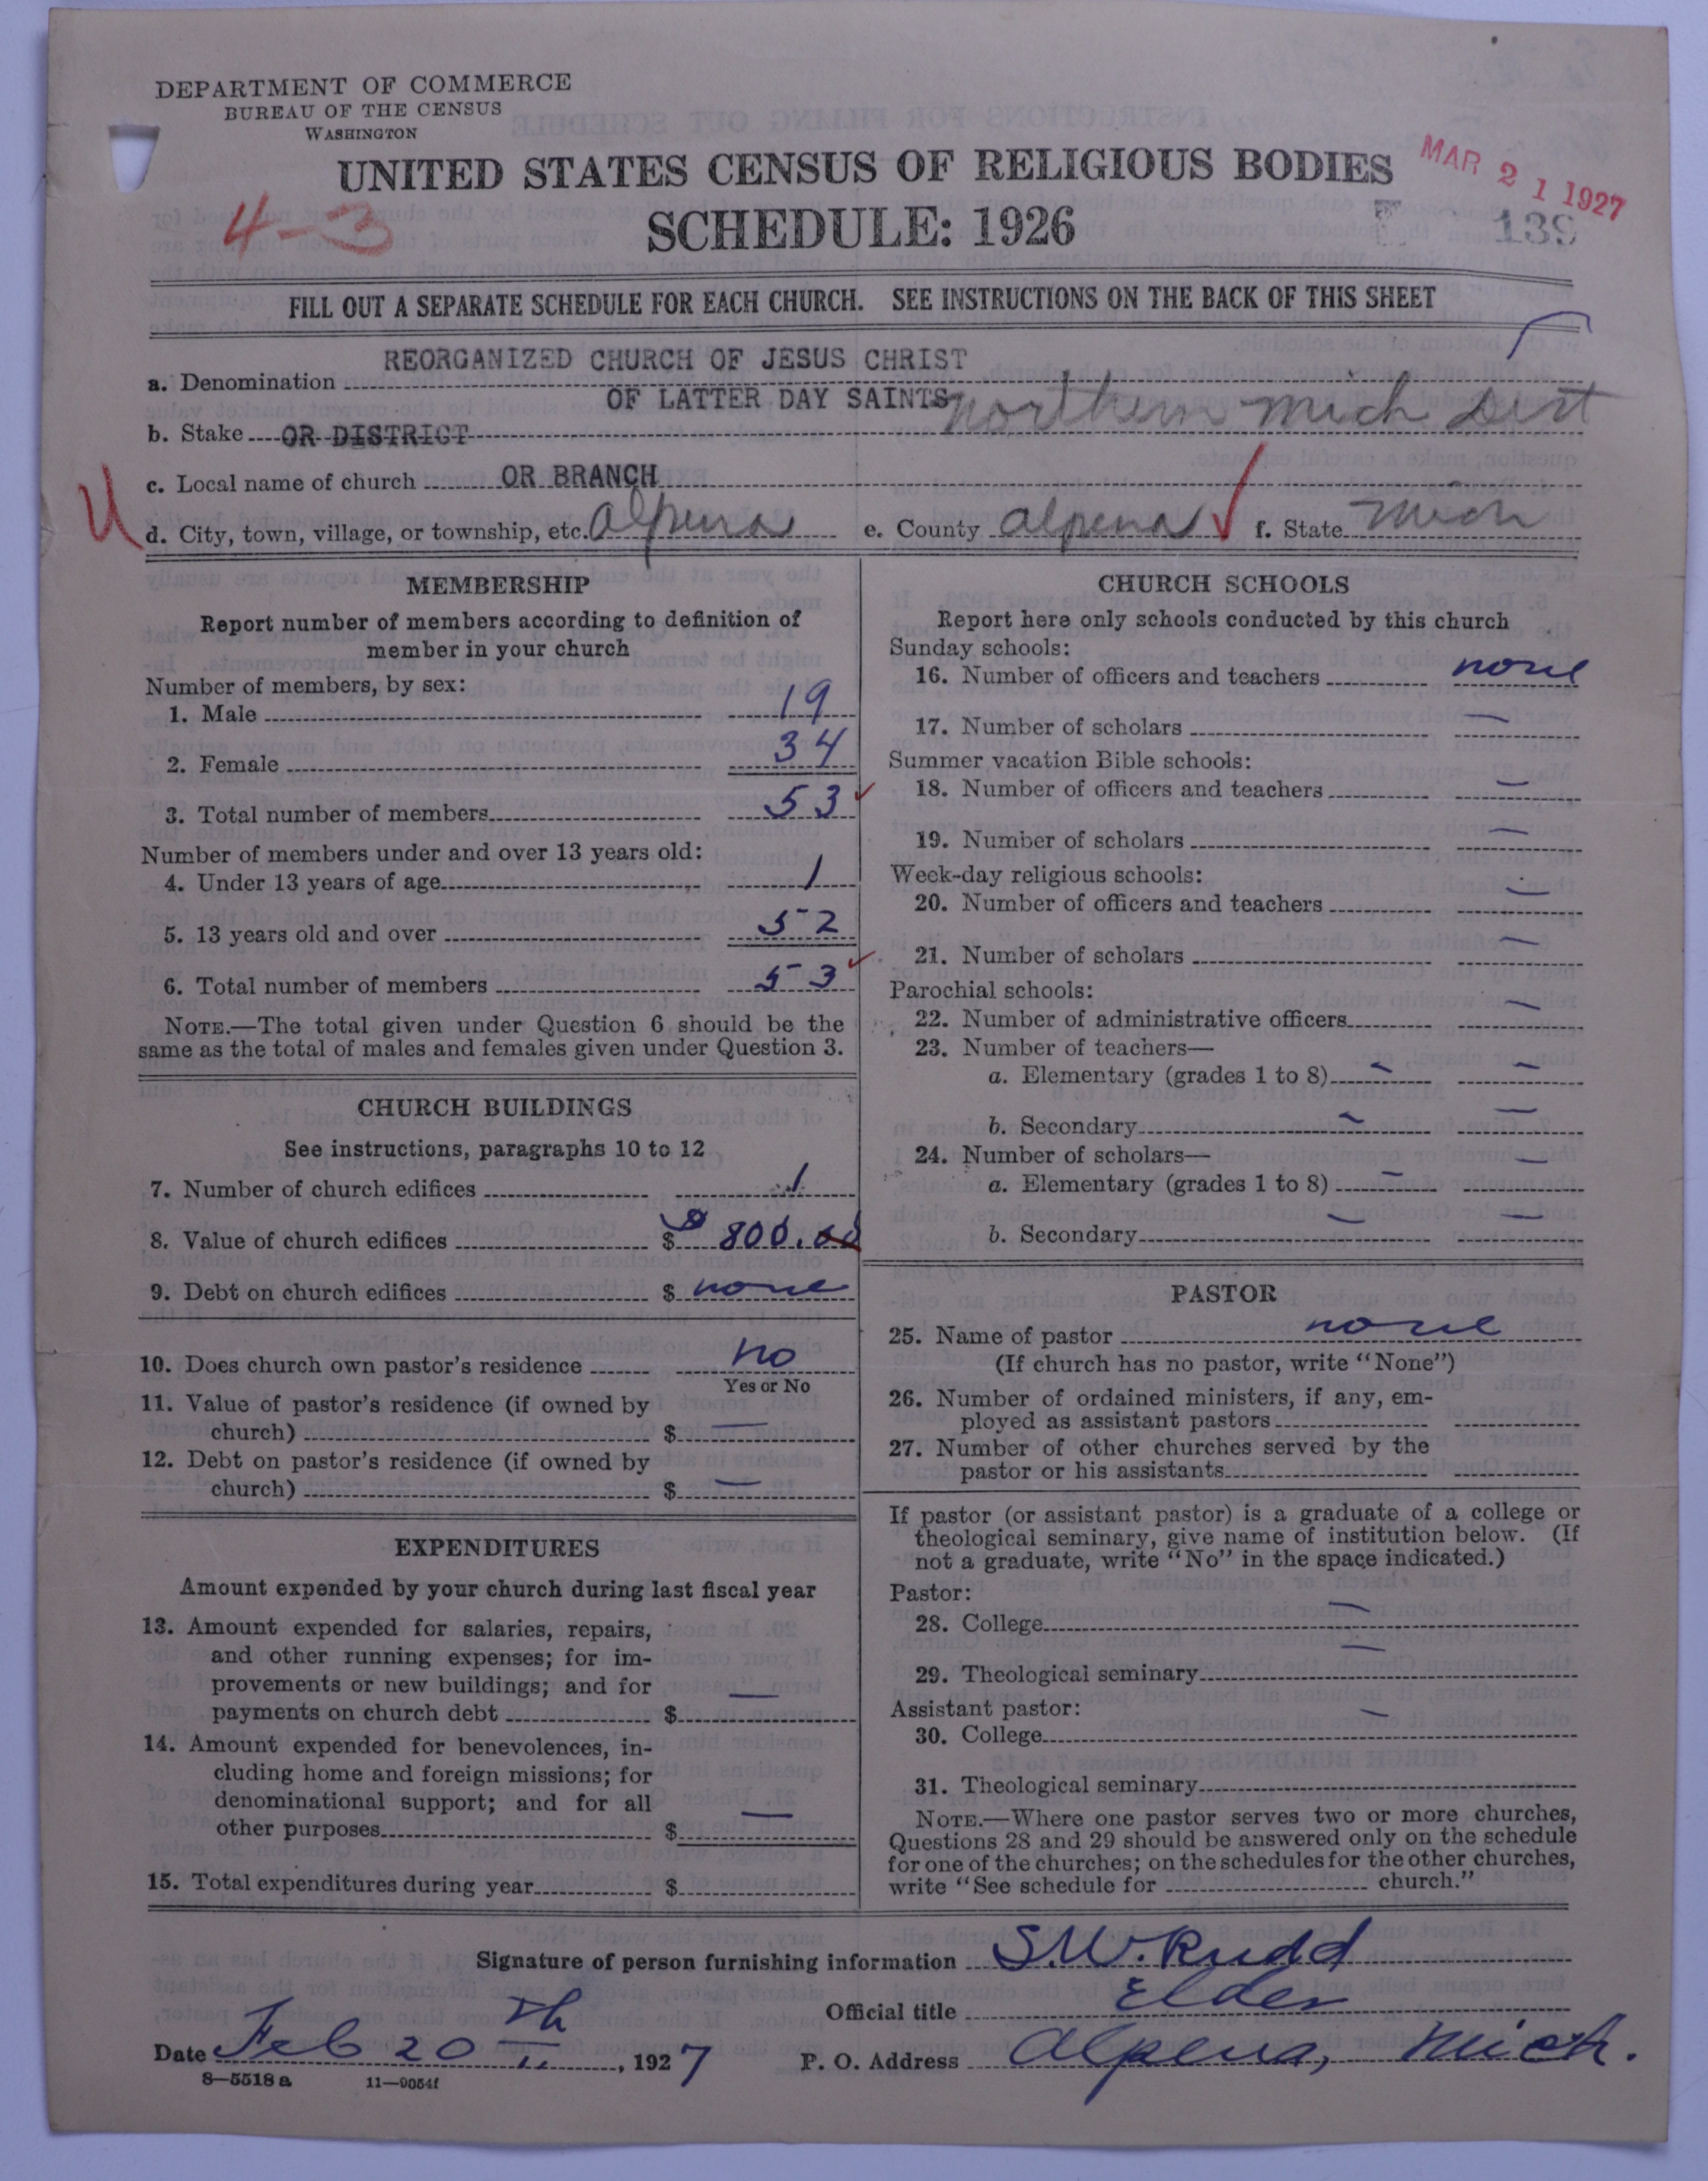 DEPARTMENT OF COMMERCE
BUREAU OF THE CENSUS
WASHINGTON
UNITED STATES CENSUS OF RELIGIOUS BODIES
MAR 21 1927
4-3
SCHEDULE: 1926
139
FILL OUT A SEPARATE SCHEDULE FOR EACH CHURCH. SEE INSTRUCTIONS ON THE BACK OF THIS SHEET
REORGANIZED CHURCH OF JESUS CHRIST
a. Denomination
OF LATTER DAY SAINTS
b. Stake OR DISTRICT northern mich Dist
c. Local name of church OR BRANCH
d. City, town, village, or township, etc. alpena e. County alpena f. State Mich
MEMBERSHIP
Report number of members according to definition of
member in your church
Number of members, by sex:
1. Male 19
2. Female 34
3. Total number of members 53
Number of members under and over 13 years old:
4. Under 13 years of age 1
5. 13 years old and over 52
6. Total number of members 53
NOTE.—The total given under Question 6 should be the
same as the total of males and females given under Question 3.
CHURCH BUILDINGS
See instructions, paragraphs 10 to 12
7. Number of church edifices 1
8. Value of church edifices $ 800.00
9. Debt on church edifices $ none
10. Does church own pastor's residence no
Yes or No
11. Value of pastor's residence (if owned by
church) $ —
12. Debt on pastor's residence (if owned by
church) $ —
EXPENDITURES
Amount expended by your church during last fiscal year
13. Amount expended for salaries, repairs,
and other running expenses; for im-
provements or new buildings; and for
payments on church debt $ —
14. Amount expended for benevolences, in-
cluding home and foreign missions; for
denominational support; and for all
other purposes $ —
15. Total expenditures during year $
CHURCH SCHOOLS
Report here only schools conducted by this church
Sunday schools:
16. Number of officers and teachers none
17. Number of scholars —
Summer vacation Bible schools:
18. Number of officers and teachers —
19. Number of scholars —
Week-day religious schools:
20. Number of officers and teachers —
21. Number of scholars —
Parochial schools:
22. Number of administrative officers —
23. Number of teachers—
a. Elementary (grades 1 to 8) — —
b. Secondary — —
24. Number of scholars— —
a. Elementary (grades 1 to 8) —
b. Secondary — —
PASTOR
25. Name of pastor none
(If church has no pastor, write "None")
26. Number of ordained ministers, if any, em-
ployed as assistant pastors
27. Number of other churches served by the
pastor or his assistants
If pastor (or assistant pastor) is a graduate of a college or
theological seminary, give name of institution below. (If
not a graduate, write "No" in the space indicated.)
Pastor:
28. College —
29. Theological seminary —
Assistant pastor:
30. College —
31. Theological seminary
NOTE.—Where one pastor serves two or more churches,
Questions 28 and 29 should be answered only on the schedule
for one of the churches; on the schedules for the other churches,
write "See schedule for church."
Signature of person furnishing information S.W. Rudd
Official title Elder
Date Feb 20th, 1927 P. O. Address Alpena, Mich.
8—5518 a 11—9054f